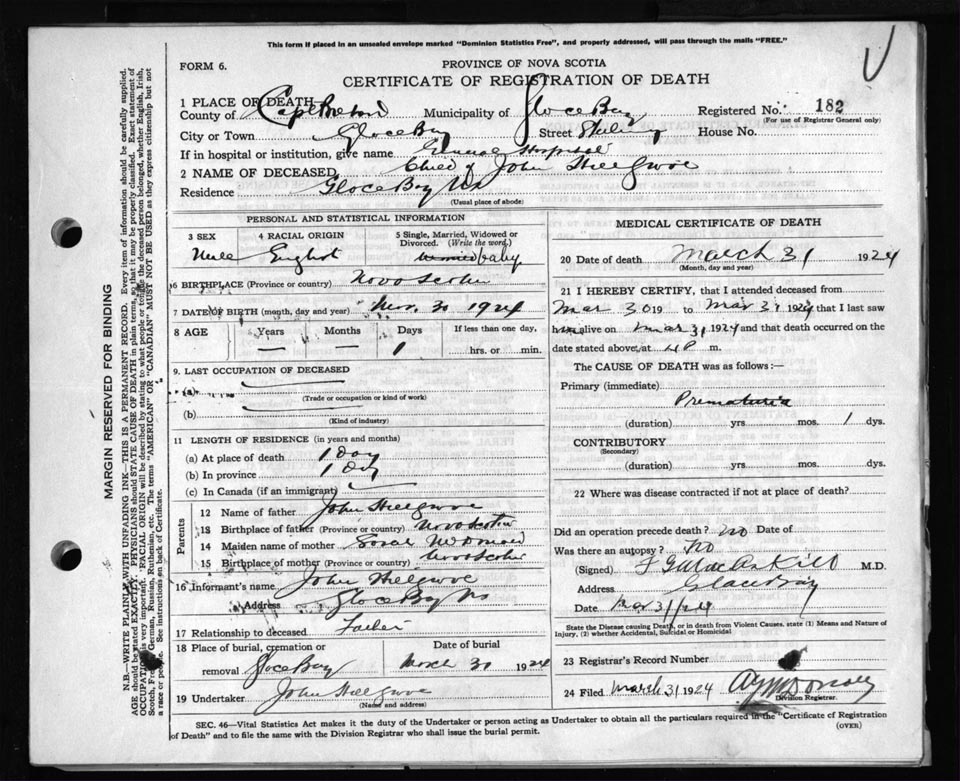 This form if placed in an unsealed envelope marked "Dominion Statistics Free", and properly addressed, will pass through the mails "FREE."
FORM 6.
PROVINCE OF NOVA SCOTIA
CERTIFICATE OF REGISTRATION OF DEATH
1 PLACE OF DEATH
County of Cape Breton Municipality of Gloce Bay Registered No. 182
(For use of Registrar General only)
City or Town Gloce Bay Street House No.
If in hospital or institution, give name General Hospital
2 NAME OF DECEASED Child of John
Residence Gloce Bay NS
(Usual place of abode)
PERSONAL AND STATISTICAL INFORMATION
3 SEX 4 RACIAL ORIGIN 5 Single, Married, Widowed or Divorced. (Write the word.)
Male English baby
6 BIRTHPLACE (Province or country) Nova Scotia
7 DATE OF BIRTH (month, day and year) Mar. 30 1924
8 AGE Years Months Days If less than one day,
— — 1 hrs. or min.
9. LAST OCCUPATION OF DECEASED
(a)
(Trade or occupation or kind of work)
(b)
(Kind of industry)
11 LENGTH OF RESIDENCE (in years and months)
(a) At place of death 1 Day
(b) In province 1 Day
(c) In Canada (if an immigrant)
Parents
12 Name of father John
13 Birthplace of father (Province or country) Nova Scotia
14 Maiden name of mother McDonald
15 Birthplace of mother (Province or country) Nova Scotia
16 Informant's name John
Address Gloce Bay NS
17 Relationship to deceased Father
18 Place of burial, cremation or removal Gloce Bay
Date of burial March 1924
19 Undertaker John
(Name and address)
MEDICAL CERTIFICATE OF DEATH
20 Date of death March 31 1924
(Month, day and year)
21 I HEREBY CERTIFY, that I attended deceased from
Mar 30 19 to Mar 31 1924 that I last saw
him alive on Mar 31 1924 and that death occurred on
date stated above, at 4P m.
The CAUSE OF DEATH was as follows:—
Primary (immediate)
Prematurity
(duration) yrs mos. 1 dys.
CONTRIBUTORY
(Secondary)
(duration) yrs mos. dys.
22 Where was disease contracted if not at place of death?
Did an operation precede death? no Date of
Was there an autopsy? no
(Signed) M.D.
Address Glace Bay
Date Mar 31/24
State the Disease causing Death, or in death from Violent Causes, state (1) Means and Nature of Injury, (2) whether Accidental, Suicidal or Homicidal
23 Registrar's Record Number
24 Filed March 31 1924
Division Registrar.
SEC. 46—Vital Statistics Act makes it the duty of the Undertaker or person acting as Undertaker to obtain all the particulars required in the "Certificate of Registration of Death" and to file the same with the Division Registrar who shall issue the burial permit.
(OVER)
MARGIN RESERVED FOR BINDING
N.B.—WRITE PLAINLY WITH UNFADING INK—THIS IS A PERMANENT RECORD. Every item of information should be carefully supplied.
AGE should be stated EXACTLY. PHYSICIANS should STATE CAUSE OF DEATH in plain terms, so that it may be properly classified. Exact statement of
OCCUPATION is very important. RACIAL ORIGIN will be described by stating to what people or tongue the deceased person belonged, whether English, Irish,
Scotch, French, German, Russian, Ruthenian, etc. The terms "AMERICAN" OR "CANADIAN" MUST NOT BE USED as they express citizenship but not
a race or people. See instructions on back of Certificate.